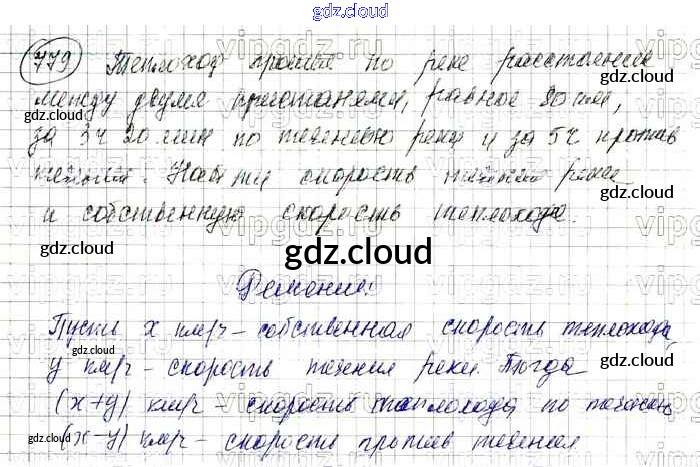 gdz.cloud
779 Теплоход прошёл по реке расстояние
между двумя пристанями, равное 80 км,
за 3ч 20 мин по течению реки и за 5ч против
течения. Найти скорость течения реки
и собственную скорость теплохода.
gdz.cloud
Решение:
Пусть x км/ч – собственная скорость теплохода
y км/ч – скорость течения реки. Тогда
(x+y) км/ч – скорость теплохода по течению
(x-y) км/ч – скорость против течения